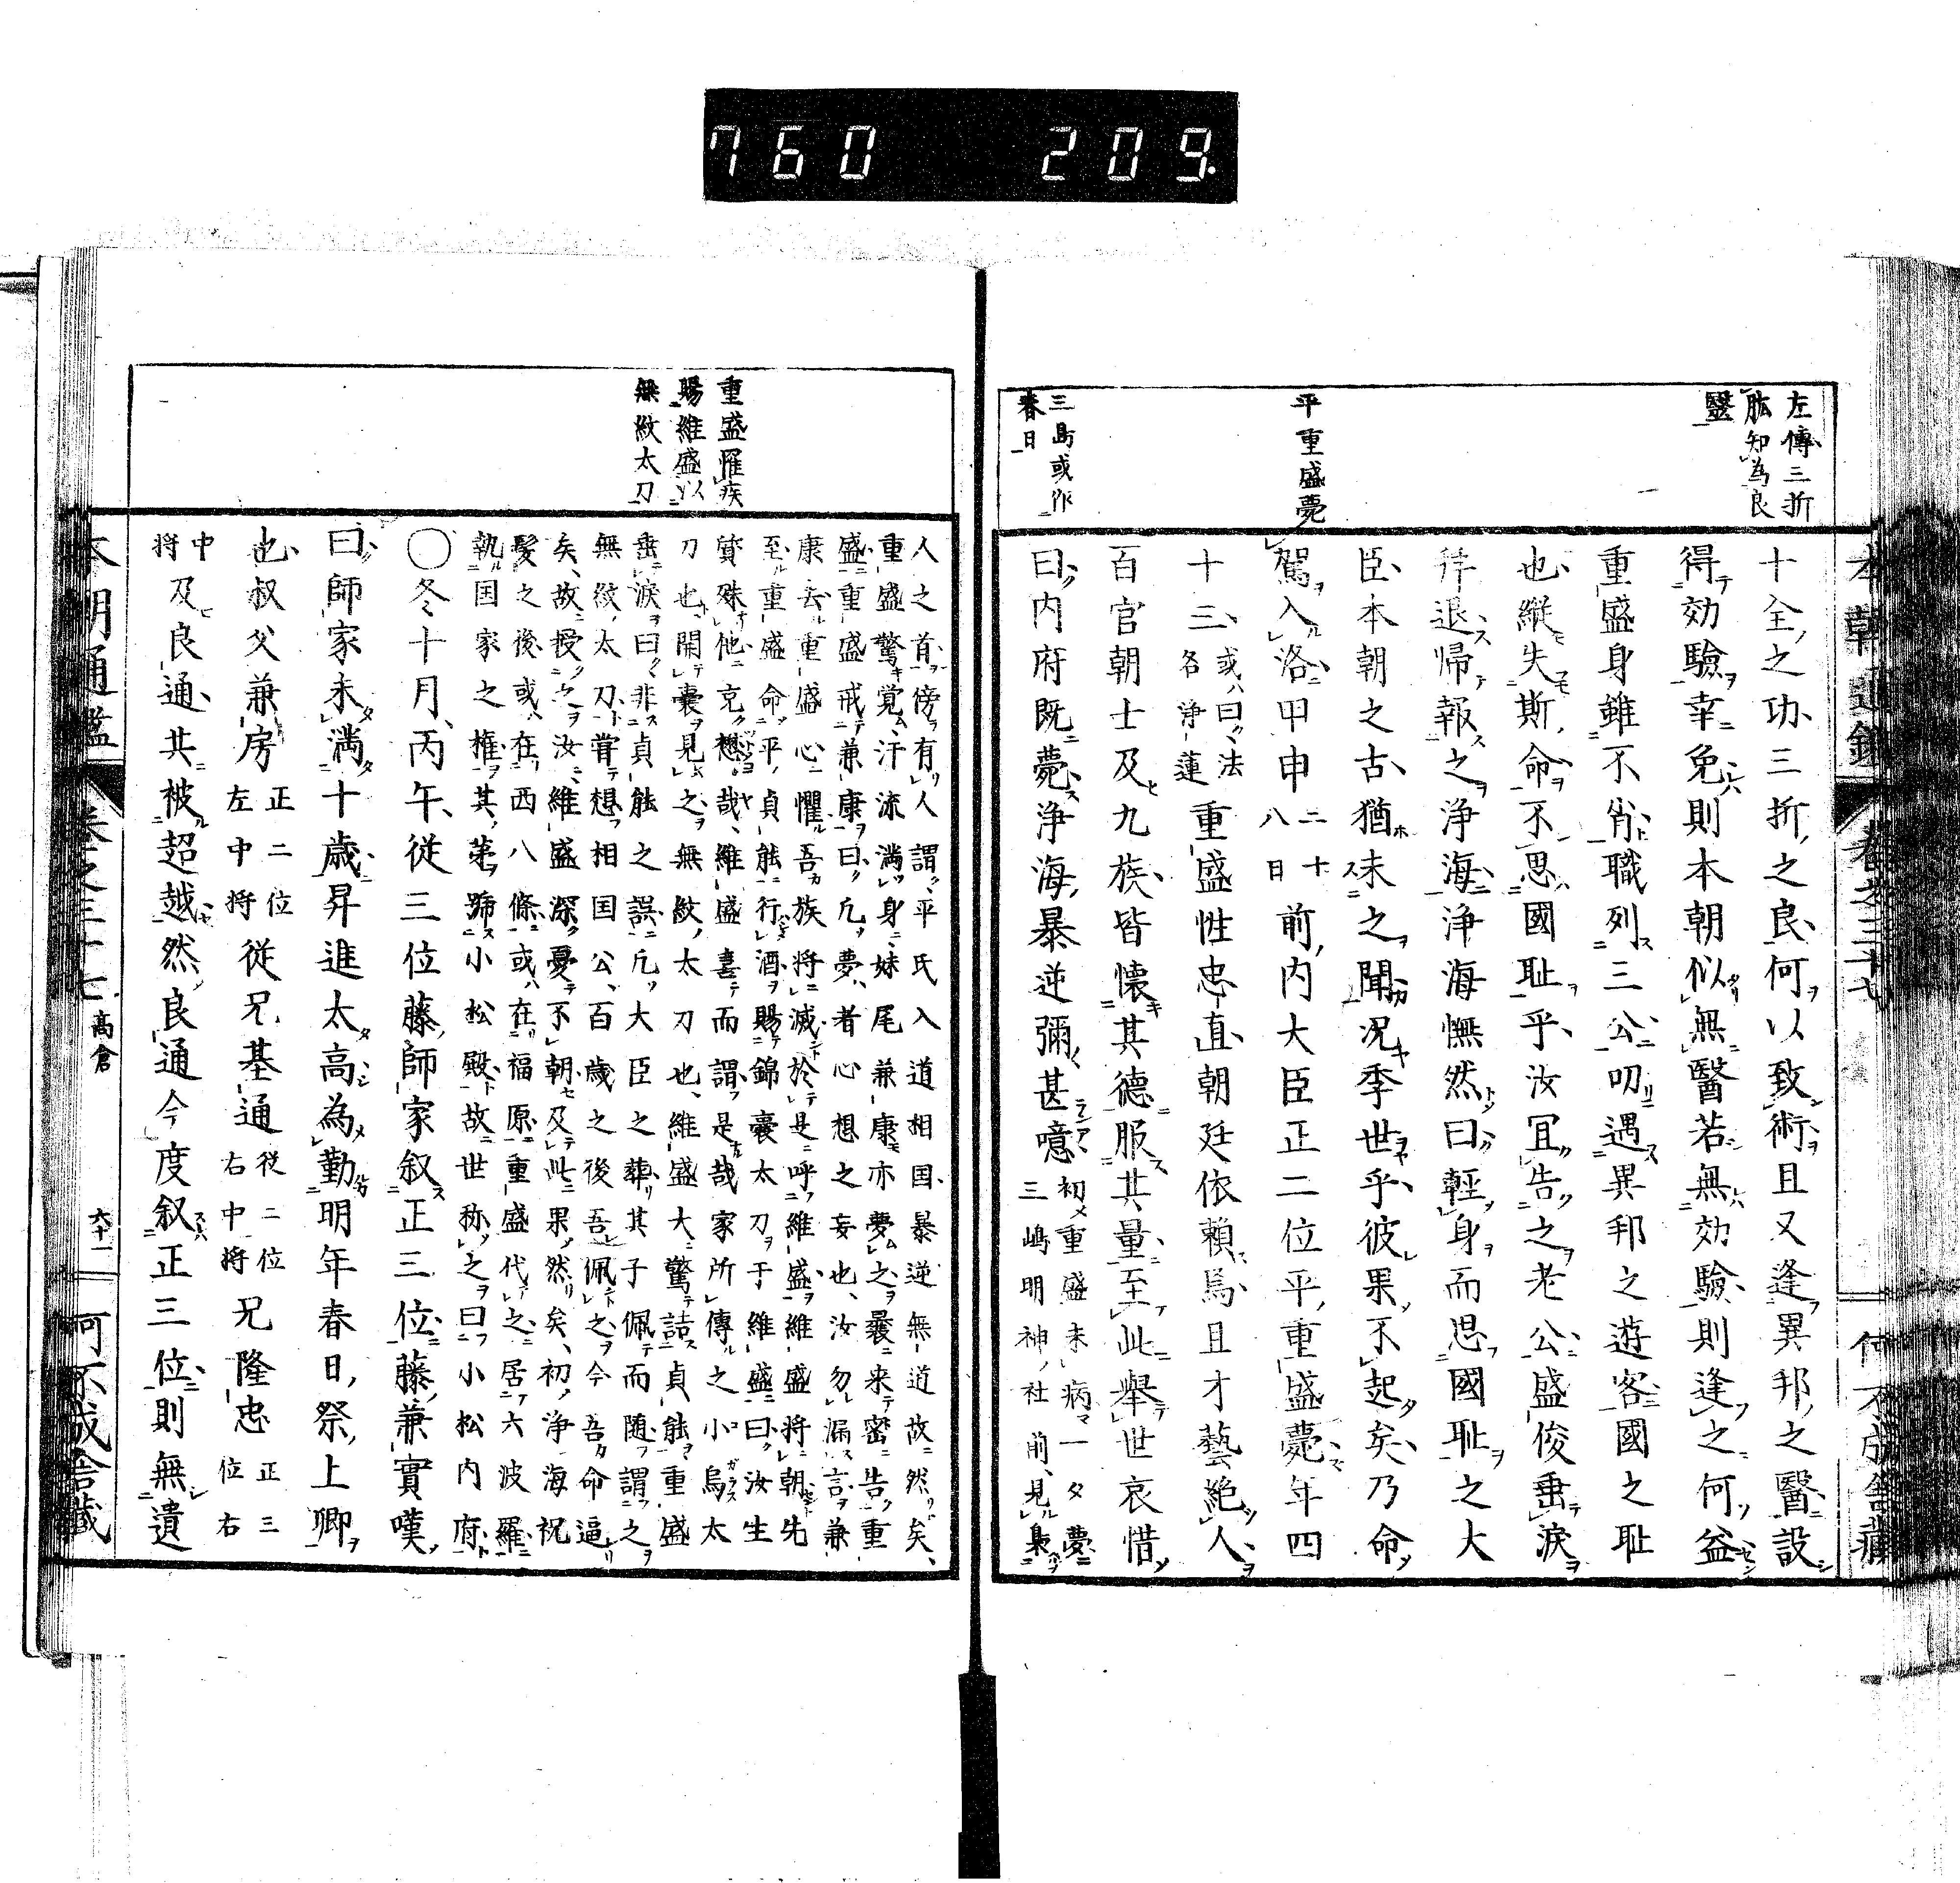 760 209.
左傳三折
肱知為良
醫
平重盛薨
三島或作
春日
十全之功三折之良何以致術且又逢異邦之醫設
得効驗幸免則本朝似無醫若無効驗則逢之何益
重盛身雖不肖職列三公叨遇異邦之遊客國之耻
也縱失斯命不思國耻乎汝冝告之老公盛俊垂淚
拜退歸報之淨海淨海憮然曰輕身而思國耻之大
臣本朝之古猶未之聞況季世乎彼果不起矣乃命
駕入洛甲申二十八日前内大臣正二位平重盛薨年四
十三或曰法名淨蓮重盛性忠直朝廷依賴焉且才藝絶人
百官朝士及九族皆懷其德服其量至此舉世哀惜
曰内府既薨淨海暴逆彌甚噫初重盛未病一夕夢三嶋明神社前見梟
重盛罹疾
賜維盛以
無紋太刀
人之首傍有人謂平氏入道相国暴逆無道故然矣
重盛驚覚汗流満身妹尾兼康亦夢之曩来密告重
盛重盛戒兼康曰凡夢者心想之妄也汝勿漏言兼
康去重盛心懼吾族將滅於是呼維盛維盛將朝先
至重盛命平貞能行酒賜錦囊太刀于維盛曰汝生
質殊他克想哉維盛喜而謂是哉家所傳之小烏太
刀也開囊見之無紋太刀也維盛大驚詰貞能重盛
垂淚曰非貞能之誤凡大臣之葬其子佩而随謂之
無紋太刀甞想相国公百歳之後吾佩之今吾命逼
矣故授之汝維盛深憂不朝及此果然矣初淨海祝
髮之後或在西八條或在福原重盛代之居六波羅
執国家之権其第号小松殿故世称之曰小松内府
〇冬十月丙午從三位藤師家叙正三位藤兼實嘆
曰師家未満十歳昇進太高為勤明年春日祭上卿
也叔父兼房正二位左中將從兄基通從二位右中將兄隆忠正三位右
中將及良通其被超越然良通今度叙正三位則無遺
本朝通鑑 卷之三十七 高倉 六十一